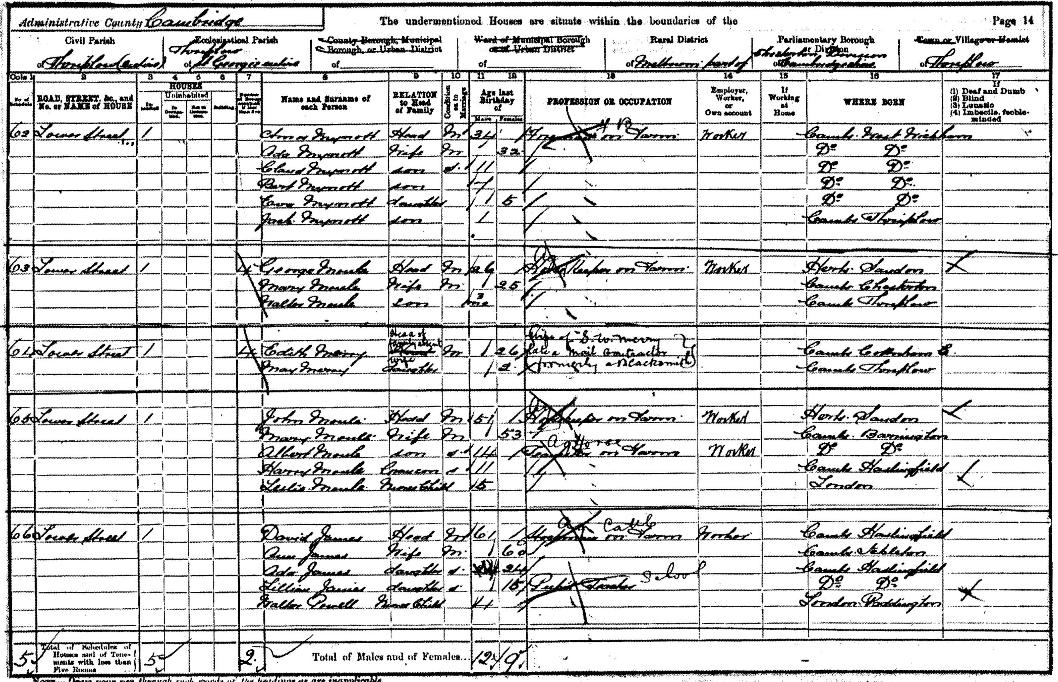 Administrative County Cambridge The undermentioned Houses are situate within the boundaries of the Page 14
Civil Parish Ecclesiastical Parish County Borough, Municipal Borough, or Urban District Ward of Municipal Borough or of Urban District Rural District Parliamentary Borough or Division Town or Village or Hamlet
of Thriplow (entire) of Thriplow St George entire of of of Melbourn part of of Chesterton Division Cambridgeshire of Thriplow
Cols 1 2 3 4 5 6 7 8 9 10 11 12 13 14 15 16 17
No. of Schedule ROAD, STREET, &c., and No. or NAME of HOUSE HOUSES Inhabited Uninhabited Building Name and Surname of each Person RELATION to Head of Family Condition as to Marriage Age last Birthday of Males Females PROFESSION OR OCCUPATION Employer, Worker, or Own account If Working at Home WHERE BORN If (1) Deaf and Dumb (2) Blind (3) Lunatic (4) Imbecile, feeble-minded
62 Lower Street 1 Mynott Head M 34 on Farm Worker Cambs West Wickham
Ada Mynott Wife M 32 Do Do
Claud Mynott son s 11 Do Do
Bert Mynott son 7 Do Do
Mynott daughter 5 Do Do
Jack Mynott son 1 Cambs Thriplow
63 Lower Street 1 4 George Moule Head M 26 keeper on Farm Worker Herts Sandon
Mary Moule Wife M 25 Cambs Chesterton
Walter Moule Son 3 mo Cambs Thriplow
64 Lower Street 1 4 Edith Merry wife M 26 Wife of S. W. Merry Cambs Cottenham
May Merry daughter 2 a Mail Contractor (formerly a Blacksmith) Cambs Thriplow
65 Lower Street 1 John Moule Head M 51 keeper on Farm Worker Herts Sandon
Mary Moule Wife M 53 Cambs Barrington
Albert Moule son s 14 Ag Horse on Farm Worker Do Do
Harry Moule Grandson s 11 Cambs Haslingfield
Leslie Moule Nurse Child 5 London
66 Lower Street 1 David James Head M 61 Ag Cattle on Farm Worker Cambs Haslingfield
Ann James Wife M 60 Cambs
Ada James daughter s 24 Cambs Haslingfield
Lillian James daughter s 15 Pupil Teacher School Do Do
Walter Powell Nurse Child 4 London Paddington
5 Total of Schedules of Houses and of Tenements with less than Five Rooms 5 2 Total of Males and of Females... 12 9